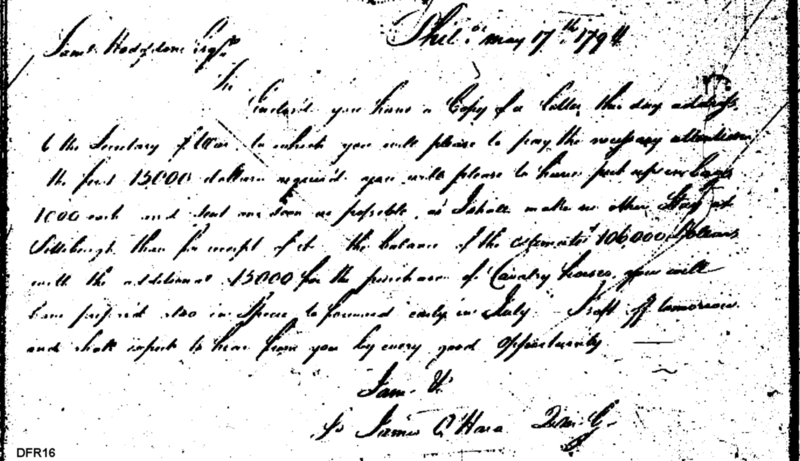 Saml. Hodgdon Esqr. Phila. may 17th. 1794
Sir
Enclosed you have a Copy of a letter this day address
to the Secretary of War to which you will please to pay the necessary attention
the first 15000 dollars required you will please to have put up in
1000 each and sent on soon as possible, as I shall make no other Stay at
Pittsburgh than for receipt of it the balance of the estimate 106000 Dollars
with the additional 15000 for the purchase of Cavalry horses you will
have prepared also in Specie to forward early in July I set off tomorrow
and shall expect to hear from you by every good Opportunity
I am Sr.
James O'Hara Q.M.G.
DFR16